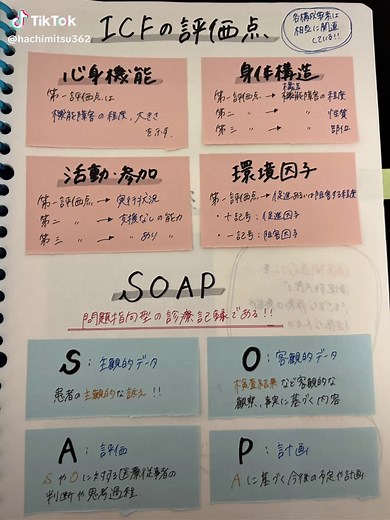 TikTok
@hachimitsu362
ICFの評価点
各構成要素は
相互に関連
している!!
心身機能
第一評価点は
機能障害の程度、大きさ
を示す.
身体構造
構造
第一評価点 → 機能障害の程度
第二 〃 → 〃 性質
第三 〃 → 〃 部位
活動・参加
第一評価点 → 実行状況
第二 〃 → 支援なしの能力
第三 〃 → 〃 あり 〃
環境因子
第一評価点 → 促進あるいは阻害する程度
・+記号:促進因子
・-記号:阻害因子
SOAP
問題指向型の診療記録である!!
S:主観的データ
患者の主観的な訴え!!
O:客観的データ
検査結果など客観的な
観察、事実に基づく内容
A:評価
SやOに対する医療従事者の
判断や思考過程
P:計画
Aに基づく今後の予定や計画